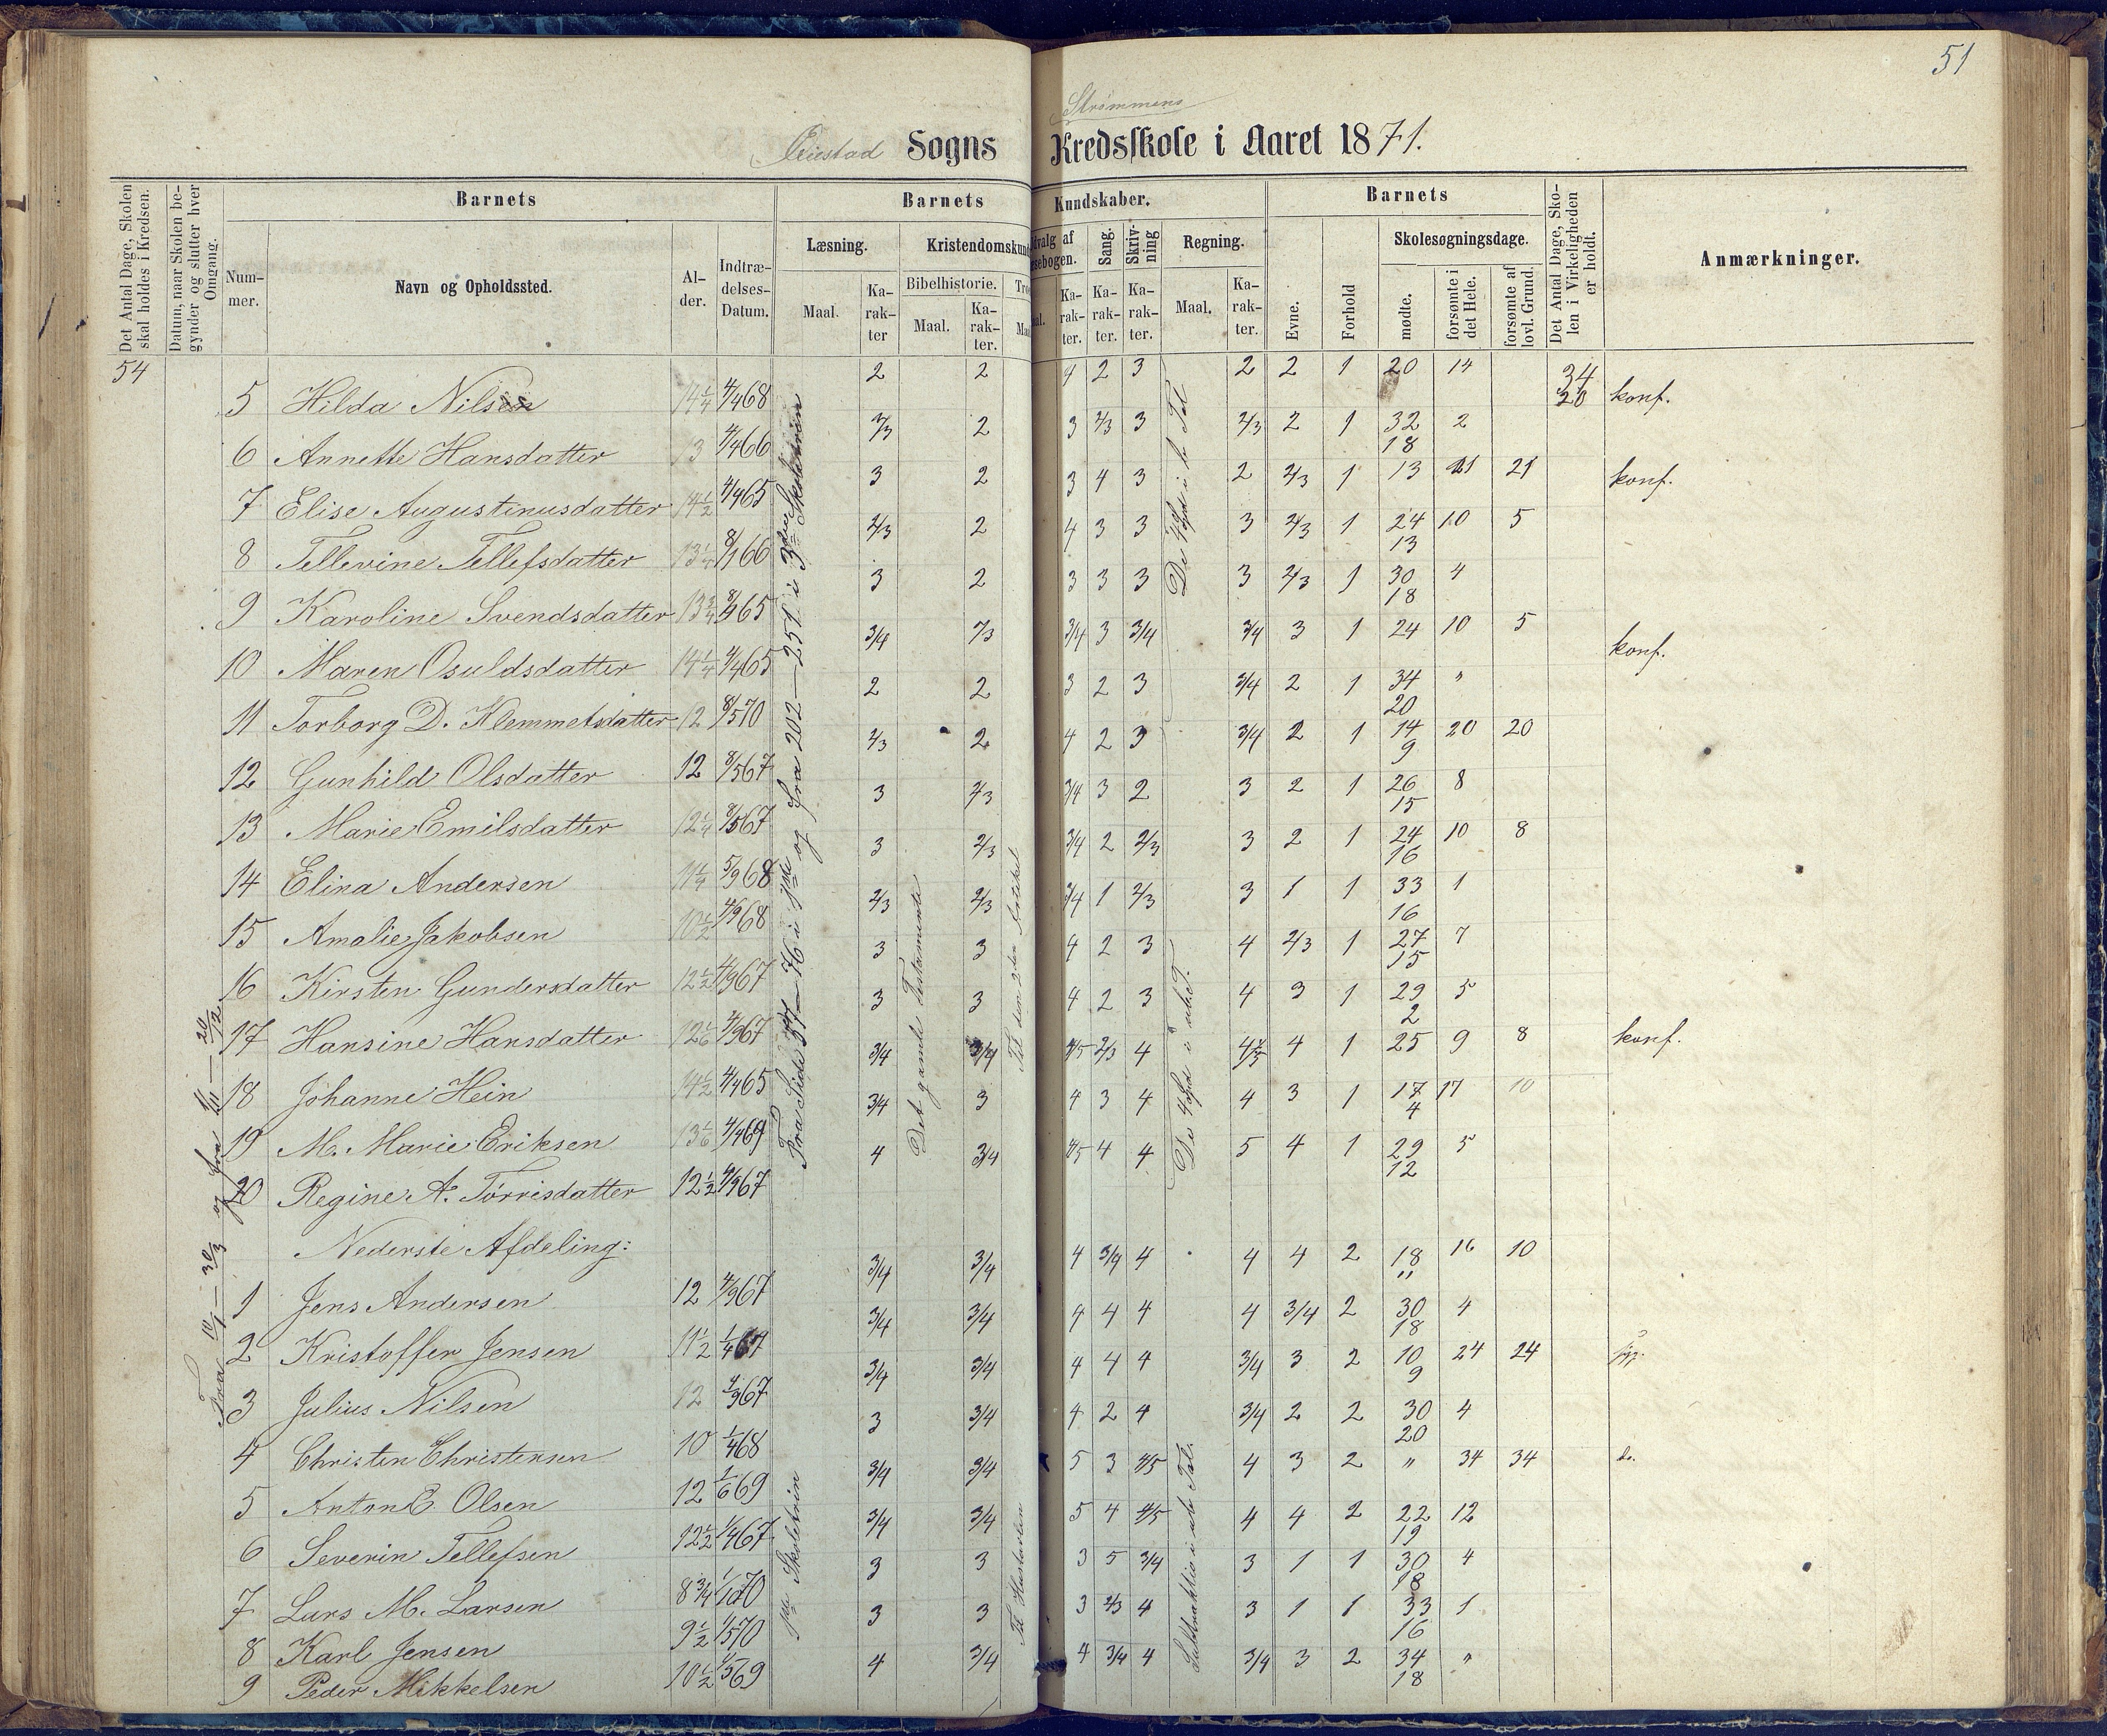 51
Strømmens
Øiestad Sogns Kredsskole i Aaret 1871.
Det Antal Dage, Skolen skal holdes i Kredsen.
Datum, naar Skolen begynder og slutter hver Omgang.
Barnets
Nummer.
Navn og Opholdssted.
Alder.
Indtrædelses-Datum.
Barnets Kundskaber.
Læsning.
Maal.
Karakter
Kristendomskun
Bibelhistorie.
Maal.
Karakter.
Sang.
Karakter.
Skrivning
Karakter.
Regning.
Maal.
Karakter.
Barnets
Evne.
Forhold
Skolesøgningsdage.
mødte.
forsømte i det Hele.
forsømte af lovl. Grund.
Det Antal Dage, Skolen i Virkeligheden er holdt.
Anmærkninger.
54
5 Hilda Nilsen 14 1/4 4/4 68 2 2 4 2 3 2 2 1 20 14 34 20 konf.
6 Annette Hansdatter 13 4/4 66 2/3 2 3 2/3 3 2/3 2 1 32 18 2
7 Elise Augustinusdatter 14 1/2 4/4 65 3 2 3 4 3 2 2/3 1 13 21 21 konf.
8 Tellevine Tellefsdatter 13 1/4 8/1 66 2/3 2 4 3 3 3 2/3 1 24 13 10 5
9 Karoline Svendsdatter 13 3/4 65 3 2 3 3 3 3 2/3 1 30 18 4
10 Maren Osuldsdatter 14 1/4 4/4 65 3/4 2/3 3/4 3 3/4 3/4 3 1 24 10 5 konf.
11 Torborg D. Klemmetsdatter 12 8/5 70 2 2 3 2 3 3/4 2 1 34 20 "
12 Gunhild Olsdatter 12 8/5 67 2/3 2 4 2 3 3/4 2 1 14 9 20 20
13 Marie Emilsdatter 12 1/4 8/5 67 3 2/3 3/4 3 2 3 2 1 26 15 8
14 Elina Andersen 11 1/4 5/9 68 3 2/3 3/4 2 2/3 3 2 1 24 16 10 8
15 Amalie Jakobsen 10 1/2 4/9 68 2/3 2/3 3/4 1 2/3 3 1 1 33 16 1
16 Kirsten Gundersdatter 12 1/2 4/9 67 3 3 4 2 3 4 2/3 1 27 15 7
17 Hansine Hansdatter 12 1/6 4/9 67 3 3 4 2 3 4 3 1 29 2 5
18 Johanne Hein 14 1/2 4/4 65 3/4 3/4 4/5 2/3 4 4/5 4 1 25 9 8 konf.
19 M. Marie Eriksen 13 1/6 4/4 69 3/4 3 4 3 4 4 3 1 17 4 17 10
20 Regine A. Tørrisdatter 12 1/2 4/9 67 4 3/4 4/5 4 4 5 4 1 29 12 5
Nederste Afdeling:
1 Jens Andersen 12 4/9 67 3/4 3/4 4 3/4 4 4 4 2 18 " 16 10
2 Kristoffer Jensen 11 1/2 1/4 67 3/4 3/4 4 4 4 4 3/4 2 30 18 4
3 Julius Nilsen 12 4/9 67 3/4 3/4 4 4 4 3/4 3 2 10 9 24 24
4 Christen Christensen 10 1/4 68 3 3/4 4 2 4 3/4 2 2 30 20 4
5 Anton E. Olsen 12 1/6 69 3/4 3/4 5 3 4/5 4 3 2 " 34 34 do.
6 Severin Tellefsen 12 1/2 1/4 67 3/4 3/4 5 4 4/5 4 4 2 22 19 12
7 Lars M. Larsen 8 3/4 70 3 3 3 5 3/4 3 1 1 30 18 4
8 Karl Jensen 9 1/2 1/5 70 3 3 3 2/3 4 3 1 1 33 16 1
9 Peder Mikkelsen 10 1/2 1/5 69 4 3/4 4 3/4 4 3/4 3 2 34 18 "
Fra 10/1 — 30/3 og fra — 20/12
og fra 202 — 251 i 3die Skoletrin
Det gamle Testamente
Til den 2den Artikel
De 4 Spd i hele Tal
1ste Skoletrin
Til Hustavlen
Subtraktion i ub. Tal.